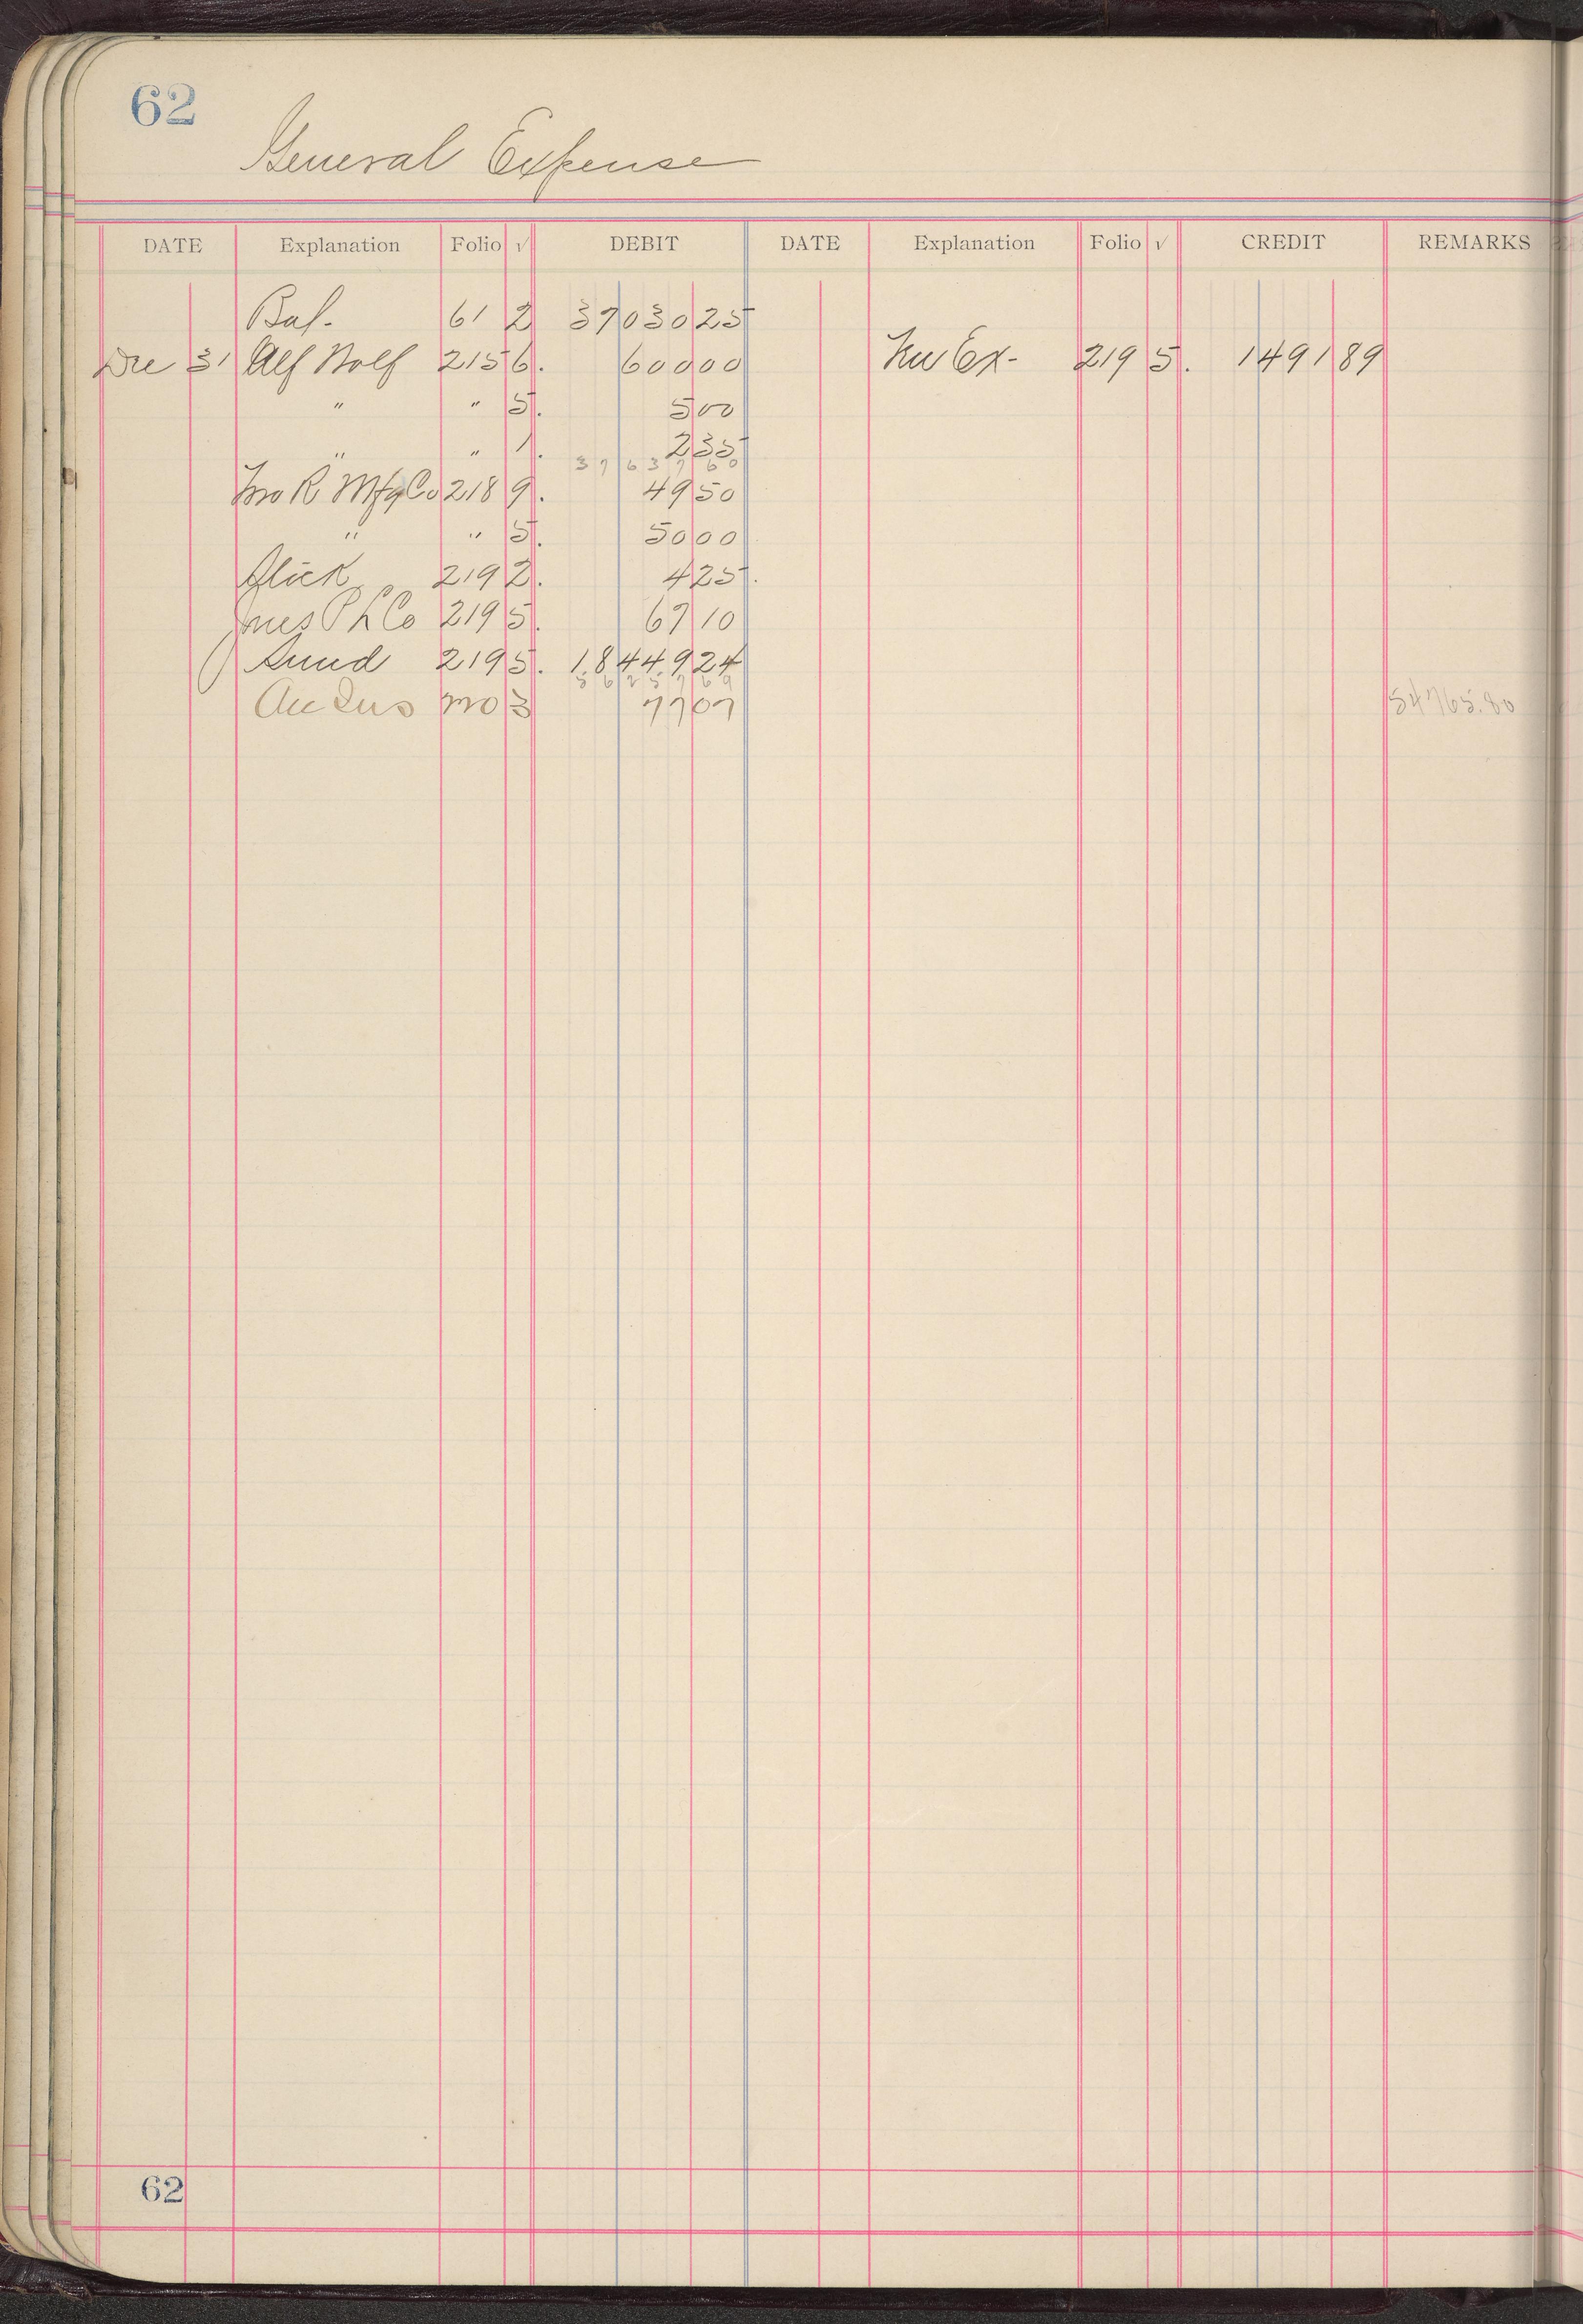 62
General Expense
DATE Explanation Folio √ DEBIT DATE Explanation Folio √ CREDIT REMARKS
Bal. 61 2 37030 25
Dec 31 Alf Wolf 215 6. 600 00 Ex- 219 5. 1491 89
" " 5. 5 00
" " 1. 2 35
37637 60
R Mfg Co 218 9. 49 50
" " 5. 50 00
Glick 219 2. 4 25
Co 219 5. 67 10
Sund 219 5. 18449 24
56257 69
Acc Ins 3 77 07 54765.80
62